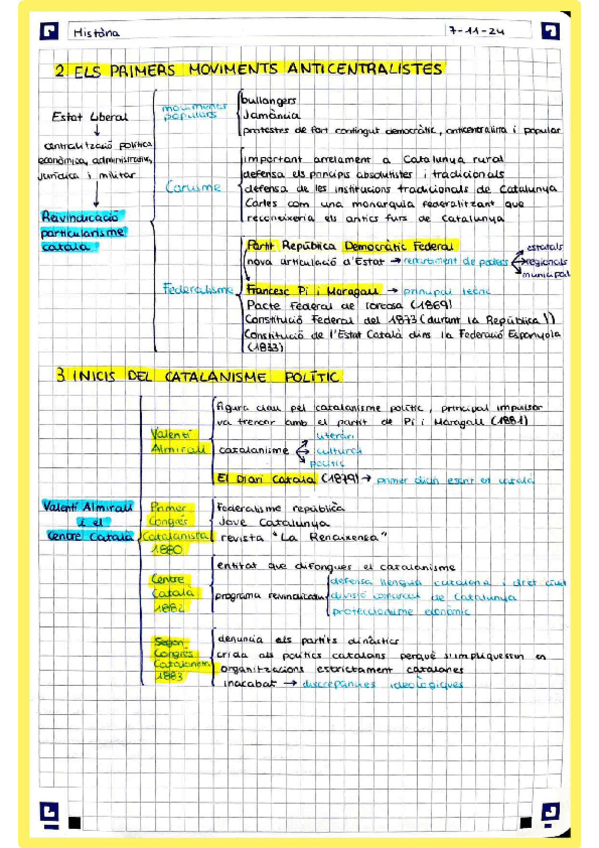 Història
7-11-24
2. ELS PRIMERS MOVIMENTS ANTICENTRALISTES
Estat Liberal
centralització política
econòmica, administrativa,
jurídica i militar
Reivindicació
particularisme
català
moviments
populars
bullangers
Jamància
protestes de fort contingut democràtic, anticentralista i popular
Carlisme
important arrelament a Catalunya rural
defensa els principis absolutistes i tradicionals
defensa de les institucions tradicionals de Catalunya
Carles com una monarquia federalitzant que
reconeixeria els antics furs de Catalunya
Federalisme
Partit República Democràtic Federal
nova articulació d'Estat → repartiment de poders
estatals
regionals
municipal
Francesc Pi i Maragall → principal teòric
Pacte Federal de Tortosa (1869)
Constitució Federal del 1873 (durant la República I)
Constitució de l'Estat Català dins la Federació Espanyola
(1833)
3 INICIS DEL CATALANISME POLÍTIC
Valentí Almirall
i el
Centre Català
Valentí
Almirall
figura clau pel catalanisme polític, principal impulsor
va trencar amb el partit de Pi i Maragall (1881)
catalanisme
literari
cultural
polític
El Diari Català (1879) → primer diari escrit en català
Primer
Congrés
Catalanista
1880
Federalisme república
Jove Catalunya
revista "La Renaixensa"
Centre
Català
1882
entitat que difongues el catalanisme
programa reivindicatiu
defensa llengua catalana i dret civil
divisió comarcal de Catalunya
proteccionisme econòmic
Segon
Congrés
Catalanista
1883
denuncia els partits dinàstics
crida als polítics catalans perquè s'impliquessin en
organitzacions estrictament catalanes
inacabat → discrepàncies ideològiques